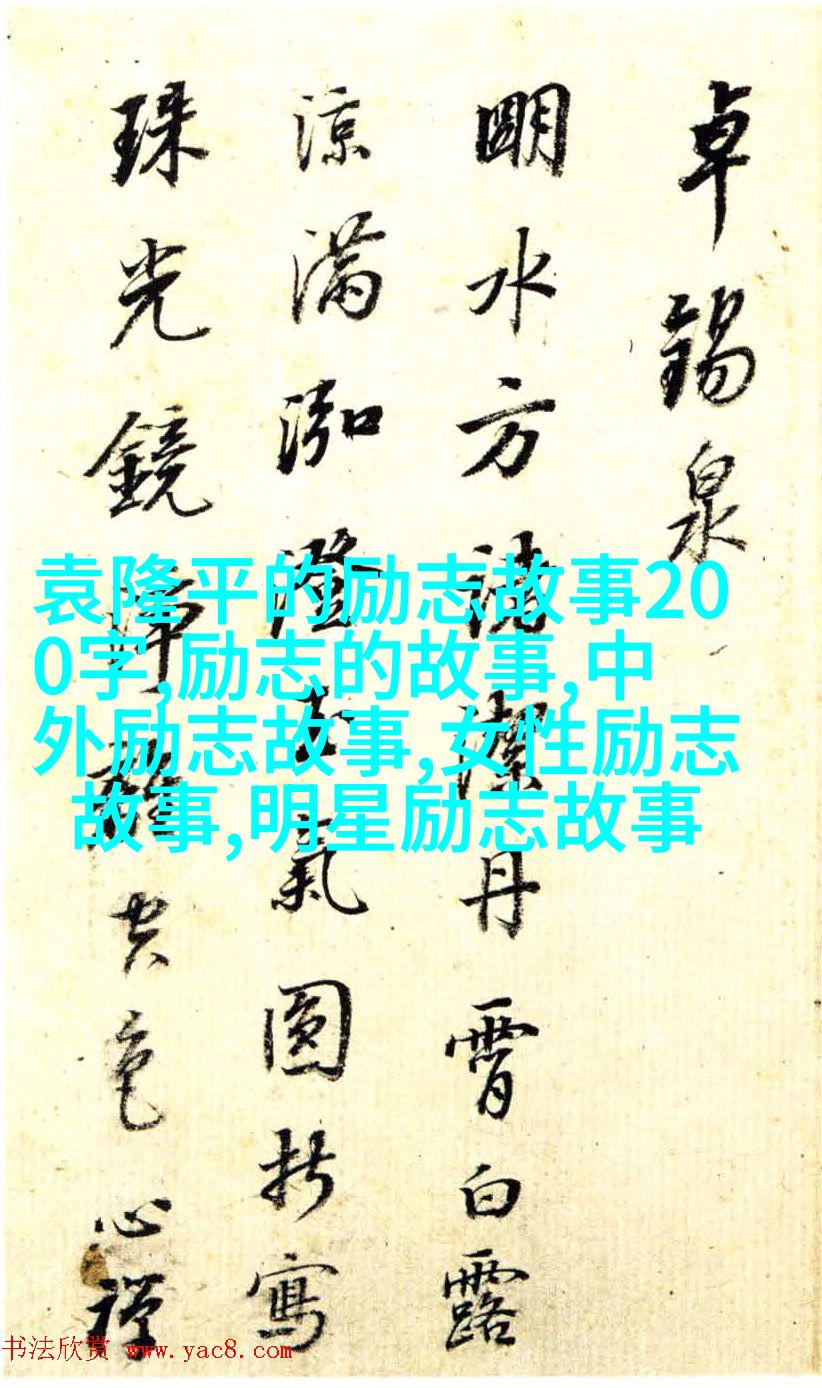 卓錫泉
明水方諸潔丹霄白露
涼滿泓澄玉氣圓折寫
珠光鏡淨空色心禪
袁隆平的励志故事20
0字,励志的故事,中
外励志故事,女性励志
故事,明星励志故事
书法欣赏 www.yac8.com